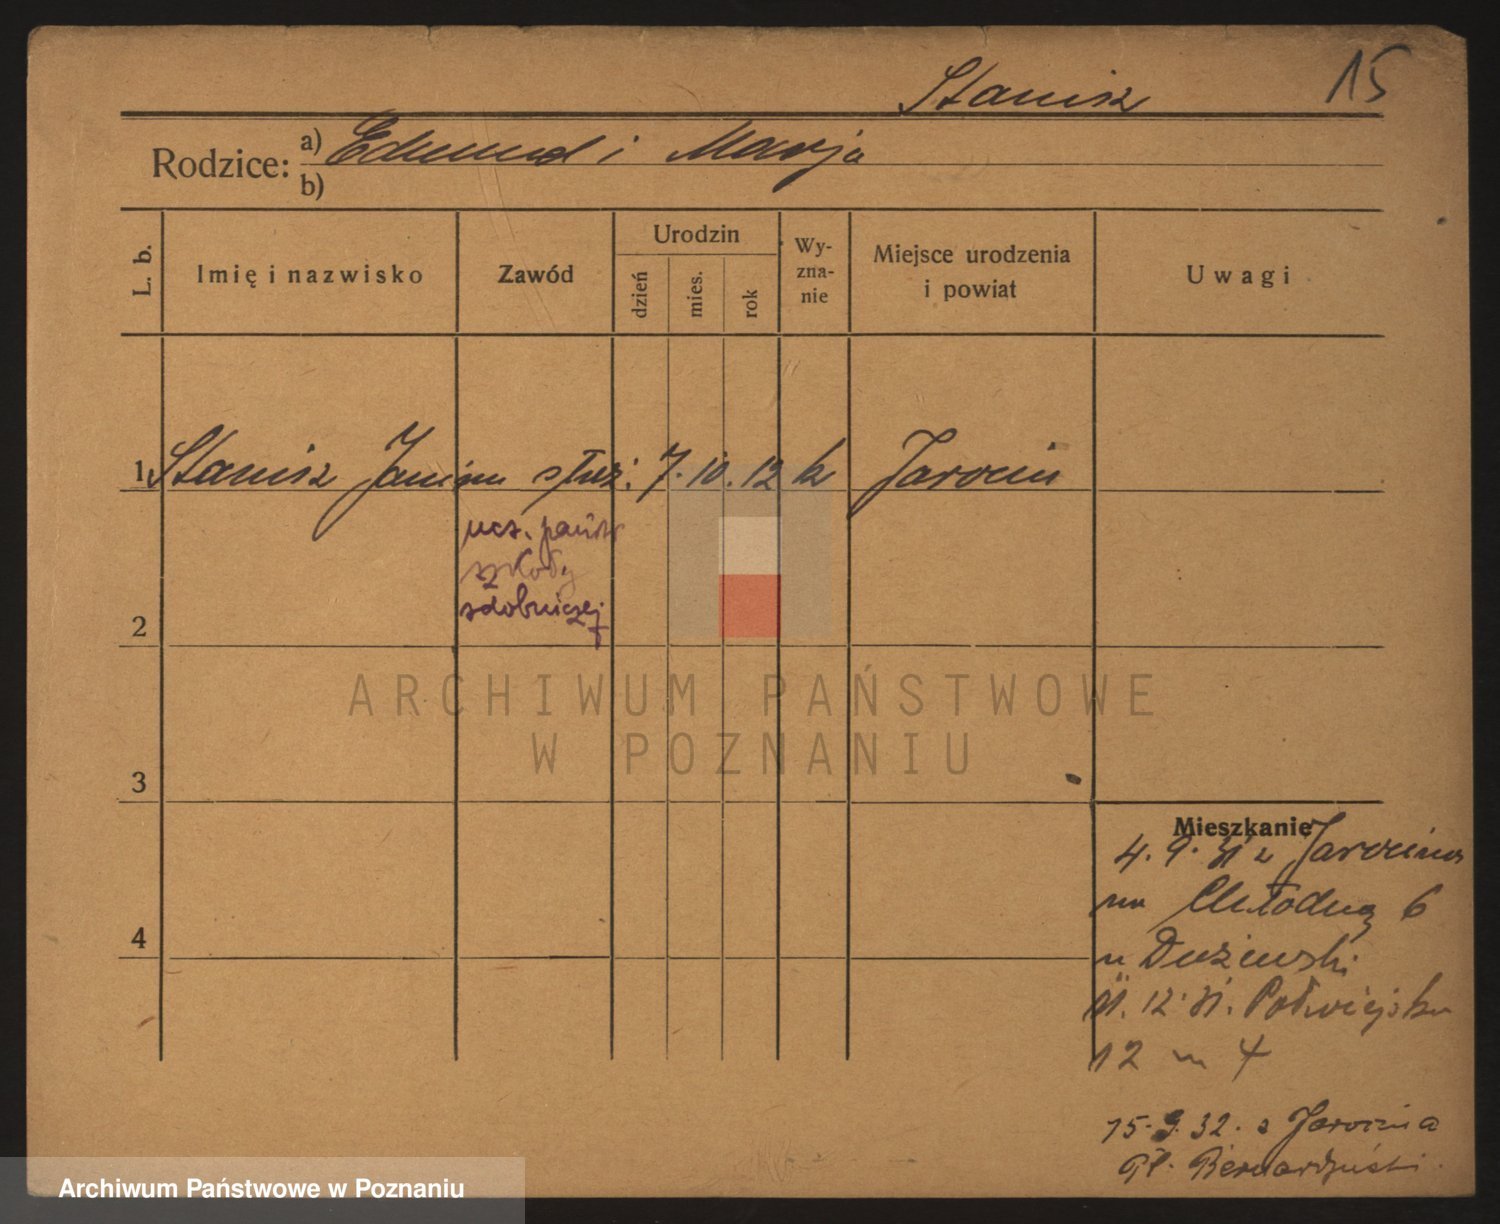 Stanisz 15
Rodzice: a) Edmund i Marja
b)
L. b. Imię i nazwisko Zawód Urodzin dzień mies. rok Wyzna-nie Miejsce urodzenia i powiat Uwagi
1 Stanisz Janina służ. 7. 10. 12 k Jarocin
ucz. państw
szkoły
zdobniczej
2
ARCHIWUM PAŃSTWOWE
W POZNANIU
3
Mieszkanie
4. 9. 31 z Jarocina
na Chłodną 6
4
u Dużewski
12. 31. Półwiejska
12 m 4
15. 9. 32. z Jarocina
Pl. Bernardyński.
Archiwum Państwowe w Poznaniu